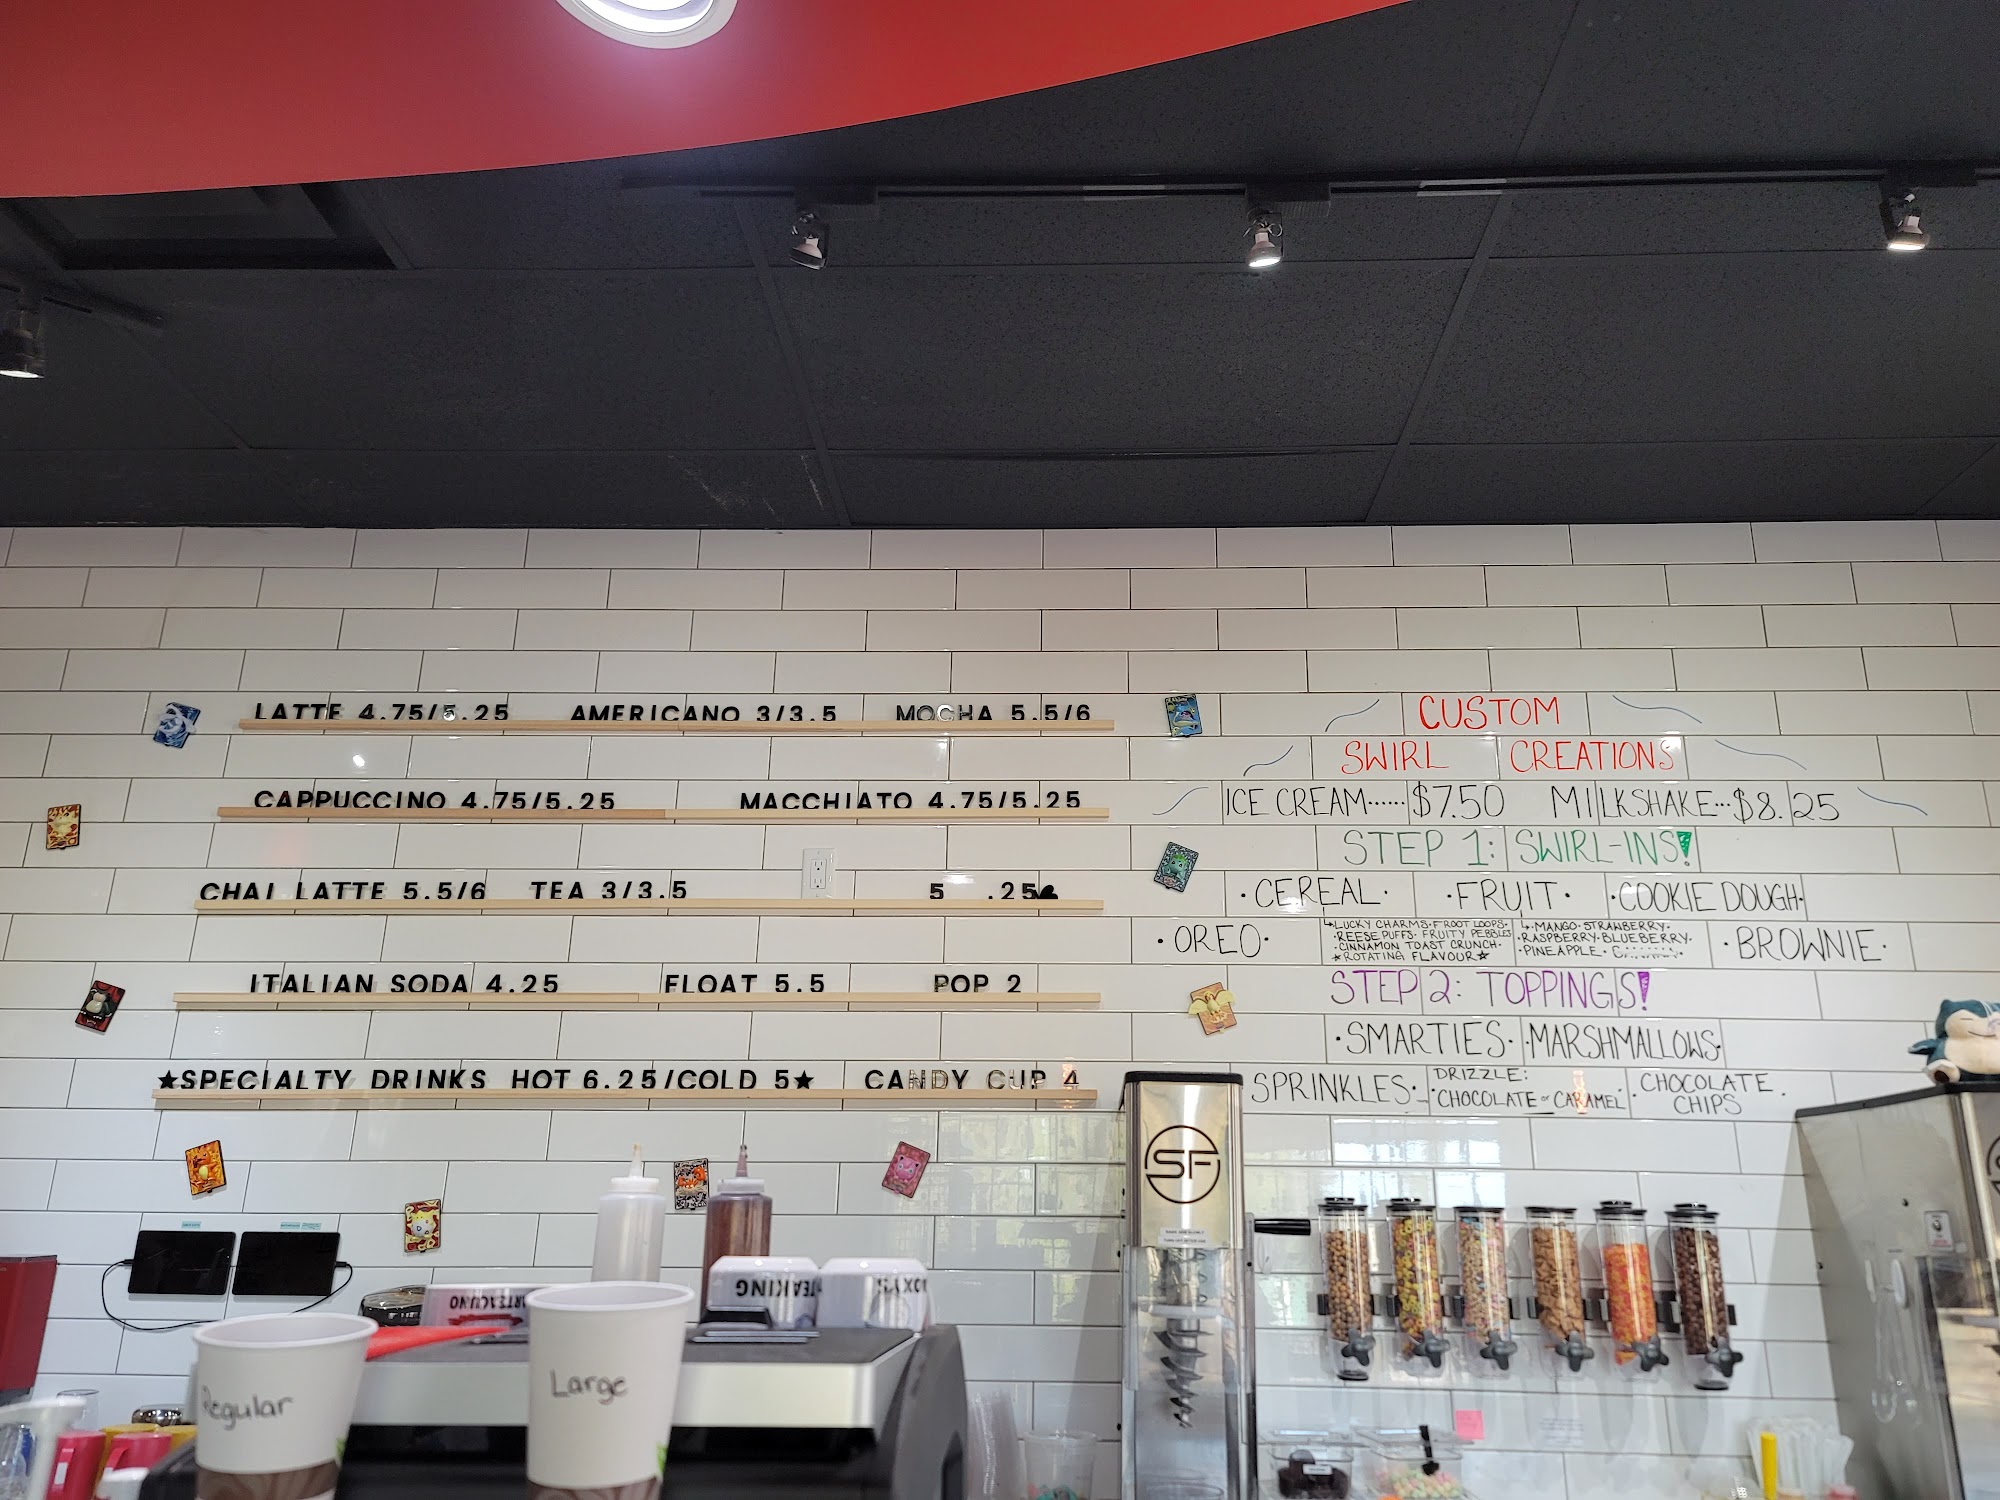 LATTE 4.75/5.25 AMERICANO 3/3.5 MOCHA 5.5/6
CAPPUCCINO 4.75/5.25 MACCHIATO 4.75/5.25
CHAI LATTE 5.5/6 TEA 3/3.5 5 .25
ITALIAN SODA 4.25 FLOAT 5.5 POP 2
★SPECIALTY DRINKS HOT 6.25/COLD 5★ CANDY CUP 4
CUSTOM
SWIRL CREATIONS
ICE CREAM......$7.50 MILKSHAKE...$8.25
STEP 1: SWIRL-INS!
·CEREAL· ·FRUIT· ·COOKIE DOUGH·
·OREO·
↳LUCKY CHARMS·FROOT LOOPS·
·REESE PUFFS·FRUITY PEBBLES
·CINNAMON TOAST CRUNCH·
★ROTATING FLAVOUR★
↳·MANGO·STRAWBERRY·
·RASPBERRY·BLUEBERRY·
·PINEAPPLE·
·BROWNIE·
STEP 2: TOPPINGS!
·SMARTIES· ·MARSHMALLOWS·
SPRINKLES·
DRIZZLE:
·CHOCOLATE or CARAMEL
·CHOCOLATE
CHIPS·
SF
TEAKING
Regular
Large